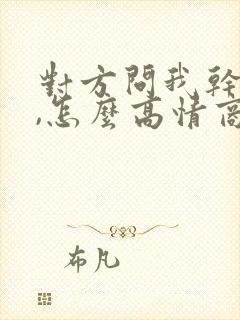 對方問我幹
,怎麼高情商
布凡